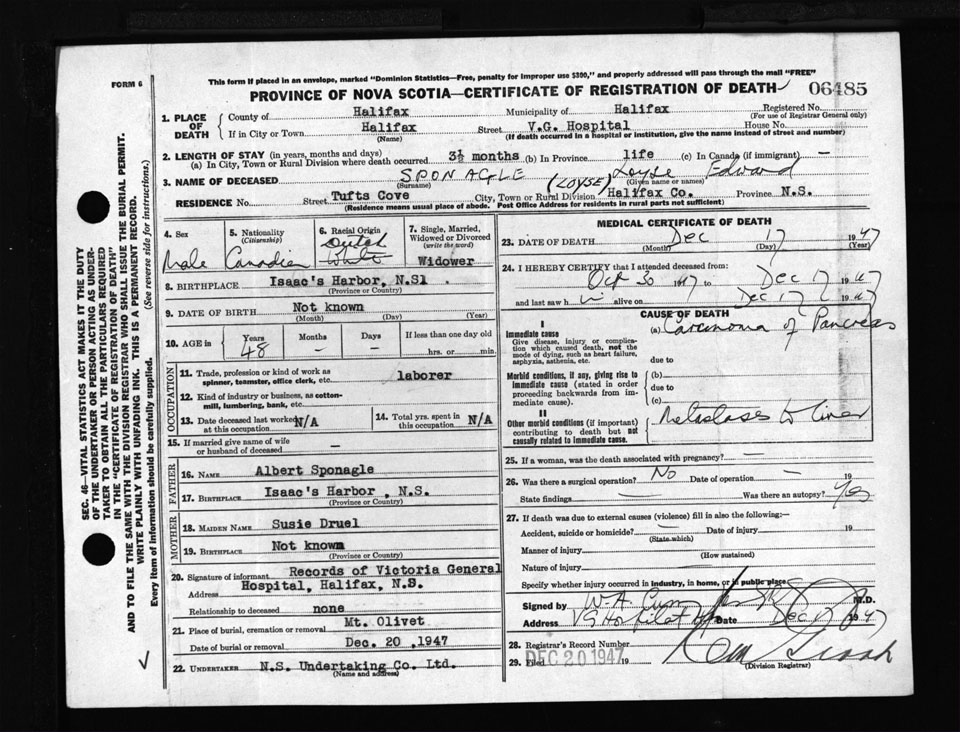 FORM 6
This form if placed in an envelope, marked "Dominion Statistics—Free, penalty for improper use $300," and properly addressed will pass through the mail "FREE"
PROVINCE OF NOVA SCOTIA—CERTIFICATE OF REGISTRATION OF DEATH 06485
1. PLACE OF DEATH
County of Halifax Municipality of Halifax Registered No.
(For use of Registrar General only)
If in City or Town Halifax Street V.G. Hospital House No.
(Name) (If death occurred in a hospital or institution, give the name instead of street and number)
2. LENGTH OF STAY (in years, months and days)
(a) In City, Town or Rural Division where death occurred 3½ months (b) In Province life (c) In Canada (if immigrant) —
3. NAME OF DECEASED SPONAGLE (LOYSE) Loyse Edward
(Surname) (Given name or names)
RESIDENCE No. Street Tufts Cove City, Town or Rural Division Halifax Co. Province N.S.
(Residence means usual place of abode. Post Office Address for residents in rural parts not sufficient)
4. Sex Male
5. Nationality (Citizenship) Canadian
6. Racial Origin Dutch White
7. Single, Married, Widowed or Divorced (write the word) Widower
8. BIRTHPLACE Isaac's Harbor, N.Sl .
(Province or Country)
9. DATE OF BIRTH Not known
(Month) (Day) (Year)
10. AGE in Years 48 Months — Days — If less than one day old hrs. or min.
OCCUPATION
11. Trade, profession or kind of work as spinner, teamster, office clerk, etc. laborer
12. Kind of industry or business, as cotton-mill, lumbering, bank, etc.
13. Date deceased last worked at this occupation N/A
14. Total yrs. spent in this occupation N/A
15. If married give name of wife or husband of deceased —
FATHER
16. NAME Albert Sponagle
17. BIRTHPLACE Isaac's Harbor , N.S.
(Province or Country)
MOTHER
18. MAIDEN NAME Susie Druel
19. BIRTHPLACE Not known
(Province or Country)
20. Signature of informant Records of Victoria General
Address Hospital, Halifax, N.S.
Relationship to deceased none
21. Place of burial, cremation or removal Mt. Olivet
Date of burial or removal Dec. 20 ,1947
22. UNDERTAKER N.S. Undertaking Co. Ltd.
(Name and address)
MEDICAL CERTIFICATE OF DEATH
23. DATE OF DEATH Dec 17 1947
(Month) (Day) (Year)
24. I HEREBY CERTIFY that I attended deceased from:
Oct 30 1947 Dec 17 1947
and last saw him alive on Dec 17 1947
CAUSE OF DEATH
I
Immediate cause
Give disease, injury or complication which caused death, not the mode of dying, such as heart failure, asphyxia, asthenia, etc.
(a) Carcinoma of Pancreas
due to
Morbid conditions, if any, giving rise to immediate cause (stated in order proceeding backwards from immediate cause).
(b)
due to
(c)
II
Other morbid conditions (if important) contributing to death but not causally related to immediate cause.
Metastases to liver
25. If a woman, was the death associated with pregnancy? —
26. Was there a surgical operation? No Date of operation — 19
State findings — Was there an autopsy? Yes
27. If death was due to external causes (violence) fill in also the following:—
Accident, suicide or homicide? — Date of injury 19
(State which)
Manner of injury
(How sustained)
Nature of injury
Specify whether injury occurred in industry, in home, or in public place
Signed by W A M.D.
Address VG Hospital Date Dec 17 1947
28. Registrar's Record Number
29. Filed DEC 20 1947 19
(Division Registrar)
SEC. 46—VITAL STATISTICS ACT MAKES IT THE DUTY
OF THE UNDERTAKER OR PERSON ACTING AS UNDER-
TAKER TO OBTAIN ALL THE PARTICULARS REQUIRED
IN THE "CERTIFICATE OF REGISTRATION OF DEATH"
AND TO FILE THE SAME WITH THE DIVISION REGISTRAR WHO SHALL ISSUE THE BURIAL PERMIT.
WRITE PLAINLY WITH UNFADING INK. THIS IS A PERMANENT RECORD.
Every item of information should be carefully supplied. (See reverse side for instructions.)